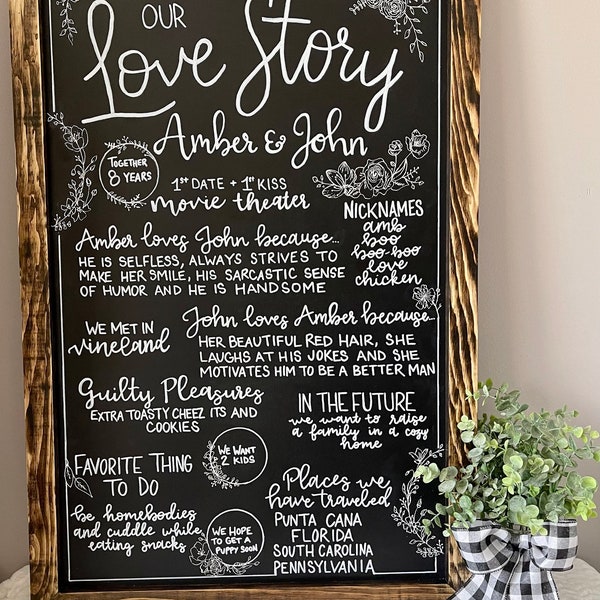 OUR
Love Story
Amber & John
TOGETHER
8 YEARS
1ST DATE + 1ST KISS
movie theater
NICKNAMES
amb
boo
boo-boo
love
chicken
Amber loves John because...
HE IS SELFLESS, ALWAYS STRIVES TO
MAKE HER SMILE, HIS SARCASTIC SENSE
OF HUMOR AND HE IS HANDSOME
WE MET IN
vineland
John loves Amber because...
HER BEAUTIFUL RED HAIR, SHE
LAUGHS AT HIS JOKES AND SHE
MOTIVATES HIM TO BE A BETTER MAN
Guilty Pleasures
EXTRA TOASTY CHEEZ ITS AND
COOKIES
IN THE FUTURE
we want to raise
a family in a cozy
home
WE WANT
2 KIDS
FAVORITE THING
TO DO
be homebodies
and cuddle while
eating snacks
WE HOPE
TO GET A
PUPPY SOON
Places we
have traveled
PUNTA CANA
FLORIDA
SOUTH CAROLINA
PENNSYLVANIA